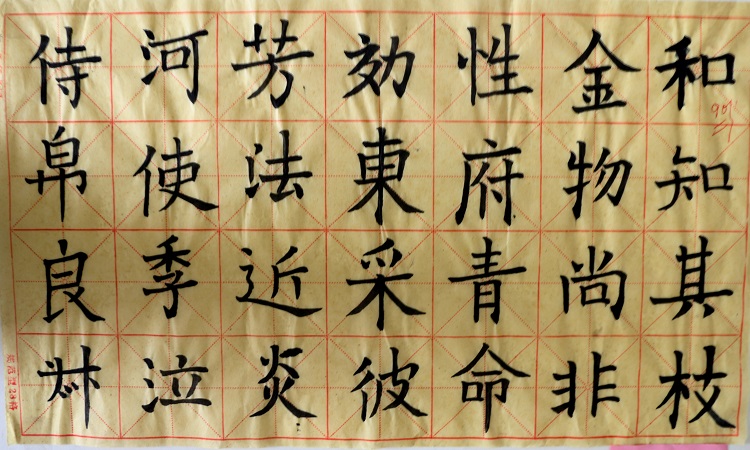 和知其枝
金物尚非
性府青命
効東采彼
芳法近炎
河使季泣
侍帛良